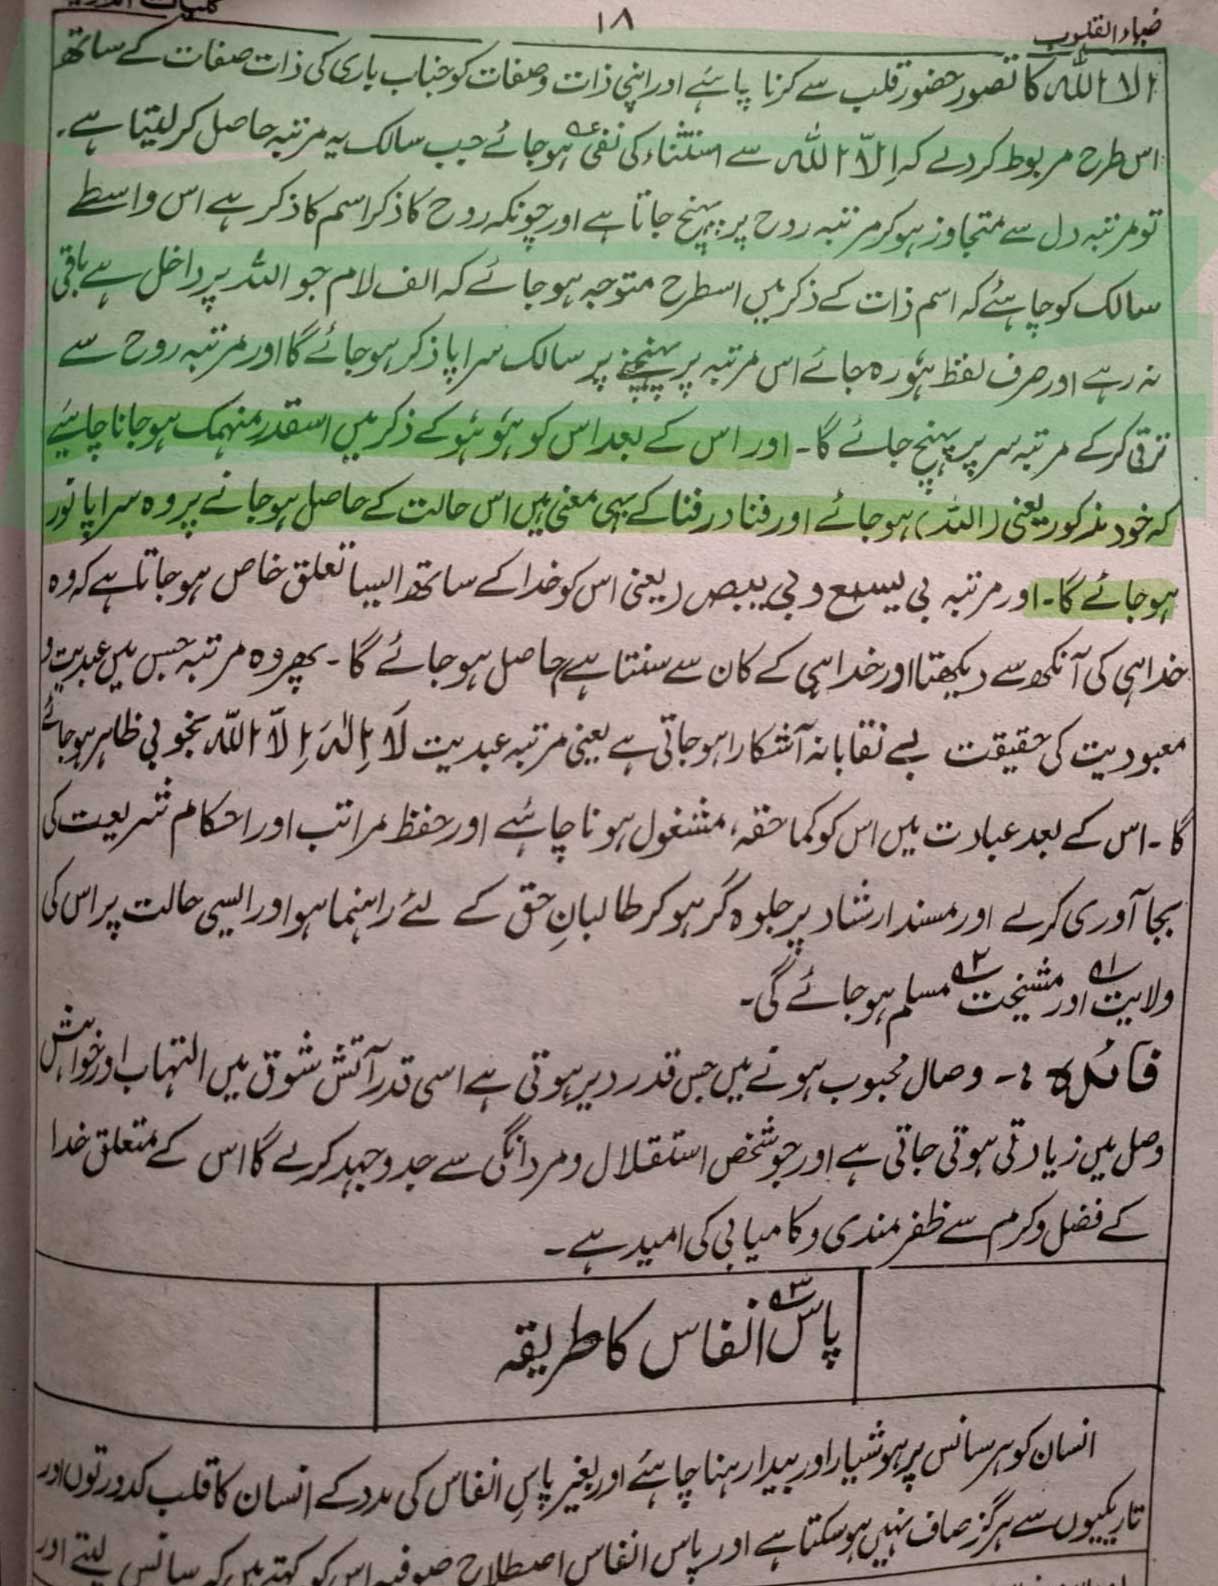 ضیاء القلوب
۱۸
الا اللہ کا تصور حضور قلب سے کرنا چاہئے اور اپنی ذات و صفات کو جناب باری کی ذات صفات کے ساتھ
اس طرح مربوط کردے کہ اِلَّا اللہ سے استثناء کی نفی ہوجائے جب سالک یہ مرتبہ حاصل کرلیتا ہے۔
تو مرتبہ دل سے متجاوز ہوکر مرتبہ روح پر پہنچ جاتا ہے اور چونکہ روح کا ذکر اسم کا ذکر ہے اس واسطے
سالک کو چاہئے کہ اسم ذات کے ذکر میں اسطرح متوجہ ہوجائے کہ الف لام جو اللہ پر داخل ہے باقی
نہ رہے اور صرف لفظ ہُو رہ جائے اس مرتبہ پر پہنچنے پر سالک سراپا ذکر ہوجائے گا اور مرتبہ روح سے
ترقی کرکے مرتبہ سر پر پہنچ جائے گا۔ اور اس کے بعد اس کو ہُو ہُو کے ذکر میں اسقدر منہمک ہوجانا چاہئے
کہ خود مذکور یعنی (اللہ) ہوجائے اور فنا در فنا کے یہی معنی ہیں اس حالت کے حاصل ہوجانے پر وہ سراپا نور
ہوجائے گا۔ اور مرتبہ بی یسمع و بی یبصر (یعنی اس کو خدا کے ساتھ ایسا تعلق خاص ہوجاتا ہے کہ وہ
خدا ہی کی آنکھ سے دیکھتا اور خدا ہی کے کان سے سنتا ہے حاصل ہوجائے گا۔ پھر وہ مرتبہ جس میں عبدیت و
معبودیت کی حقیقت بے نقابانہ آشکارا ہوجاتی ہے یعنی مرتبہ عبدیت لَا اِلٰہَ اِلَّا اللہ بخوبی ظاہر ہوجائے
گا۔ اس کے بعد عبادت میں اس کو کماحقہ، مشغول ہونا چاہئے اور حفظ مراتب اور احکام شریعت کی
بجا آوری کرے اور مسند ارشاد پر جلوہ گر ہوکر طالبانِ حق کے لئے راہنما ہو اور ایسی حالت پر اس کی
ولایت۱ اور مشیخت۲ مسلم ہوجائے گی۔
فائدہ :۔ وصال محبوب ہونے میں جس قدر دیر ہوتی ہے اسی قدر آتش شوق میں التہاب اور خواہش
وصل میں زیادتی ہوتی جاتی ہے اور جو شخص استقلال و مردانگی سے جد و جہد کرے گا اس کے متعلق خدا
کے فضل و کرم سے ظفر مندی و کامیابی کی امید ہے۔
پاس۳ انفاس کا طریقہ
انسان کو ہر سانس پر ہوشیار اور بیدار رہنا چاہئے اور بغیر پاسِ انفاس کی مدد کے انسان کا قلب کدورتوں اور
تاریکیوں سے ہرگز صاف نہیں ہوسکتا ہے اور پاس انفاس اصطلاح صوفیہ اس کو کہتے ہیں کہ سانس لیتے اور